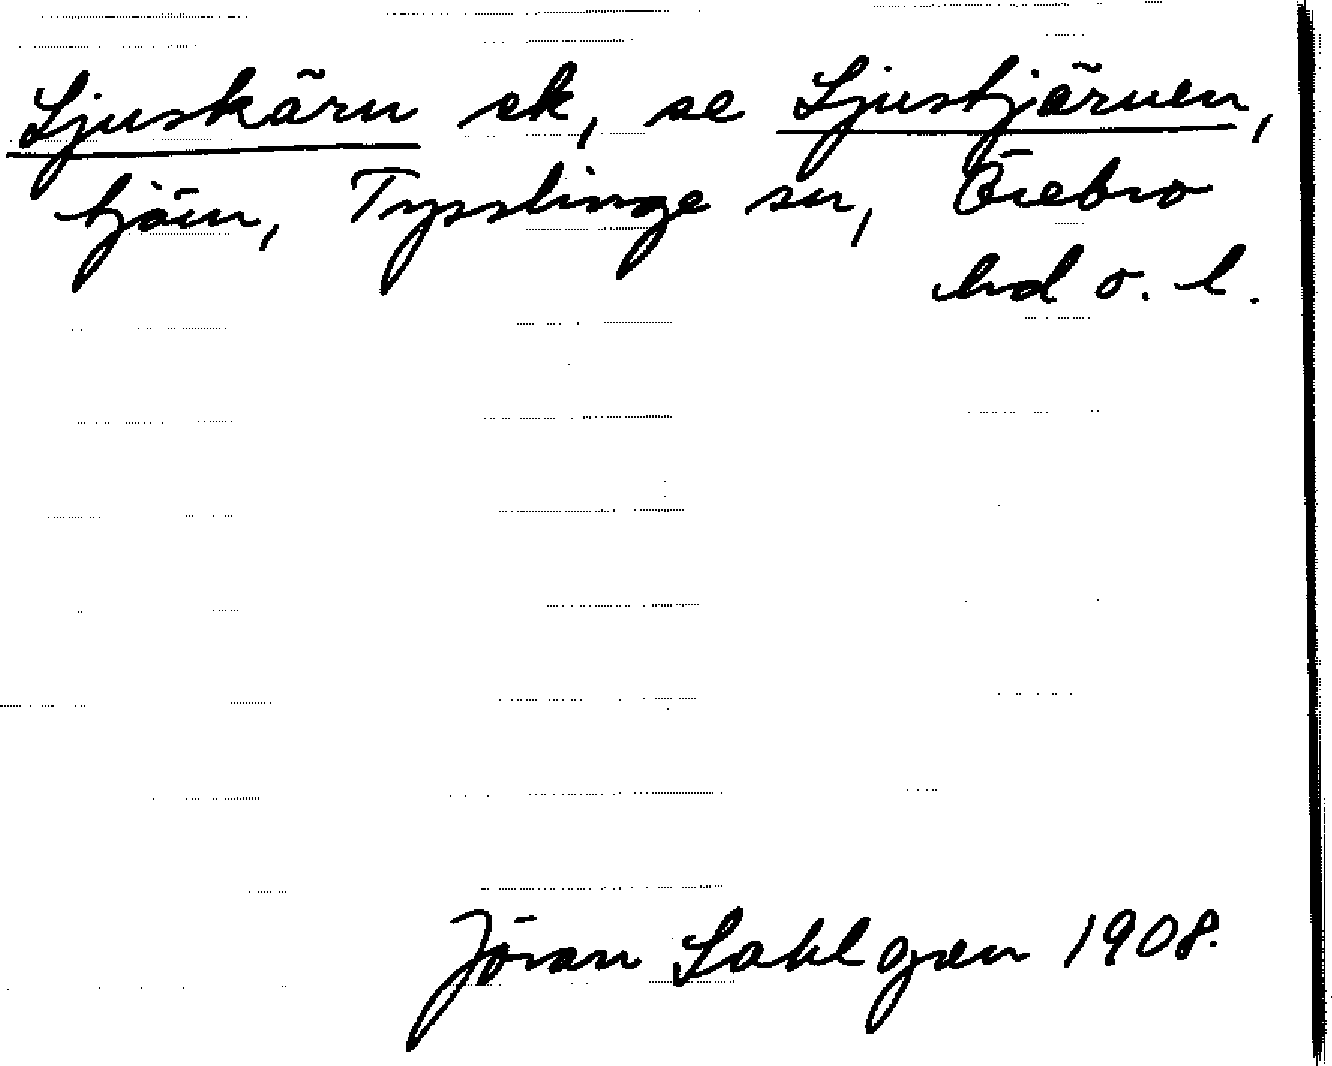 Ljuskärn sk, se Ljustjärnen,
tjärn, Tysslinge sn, Örebro
hd o. l.
Jöran Sahlgren 1908.